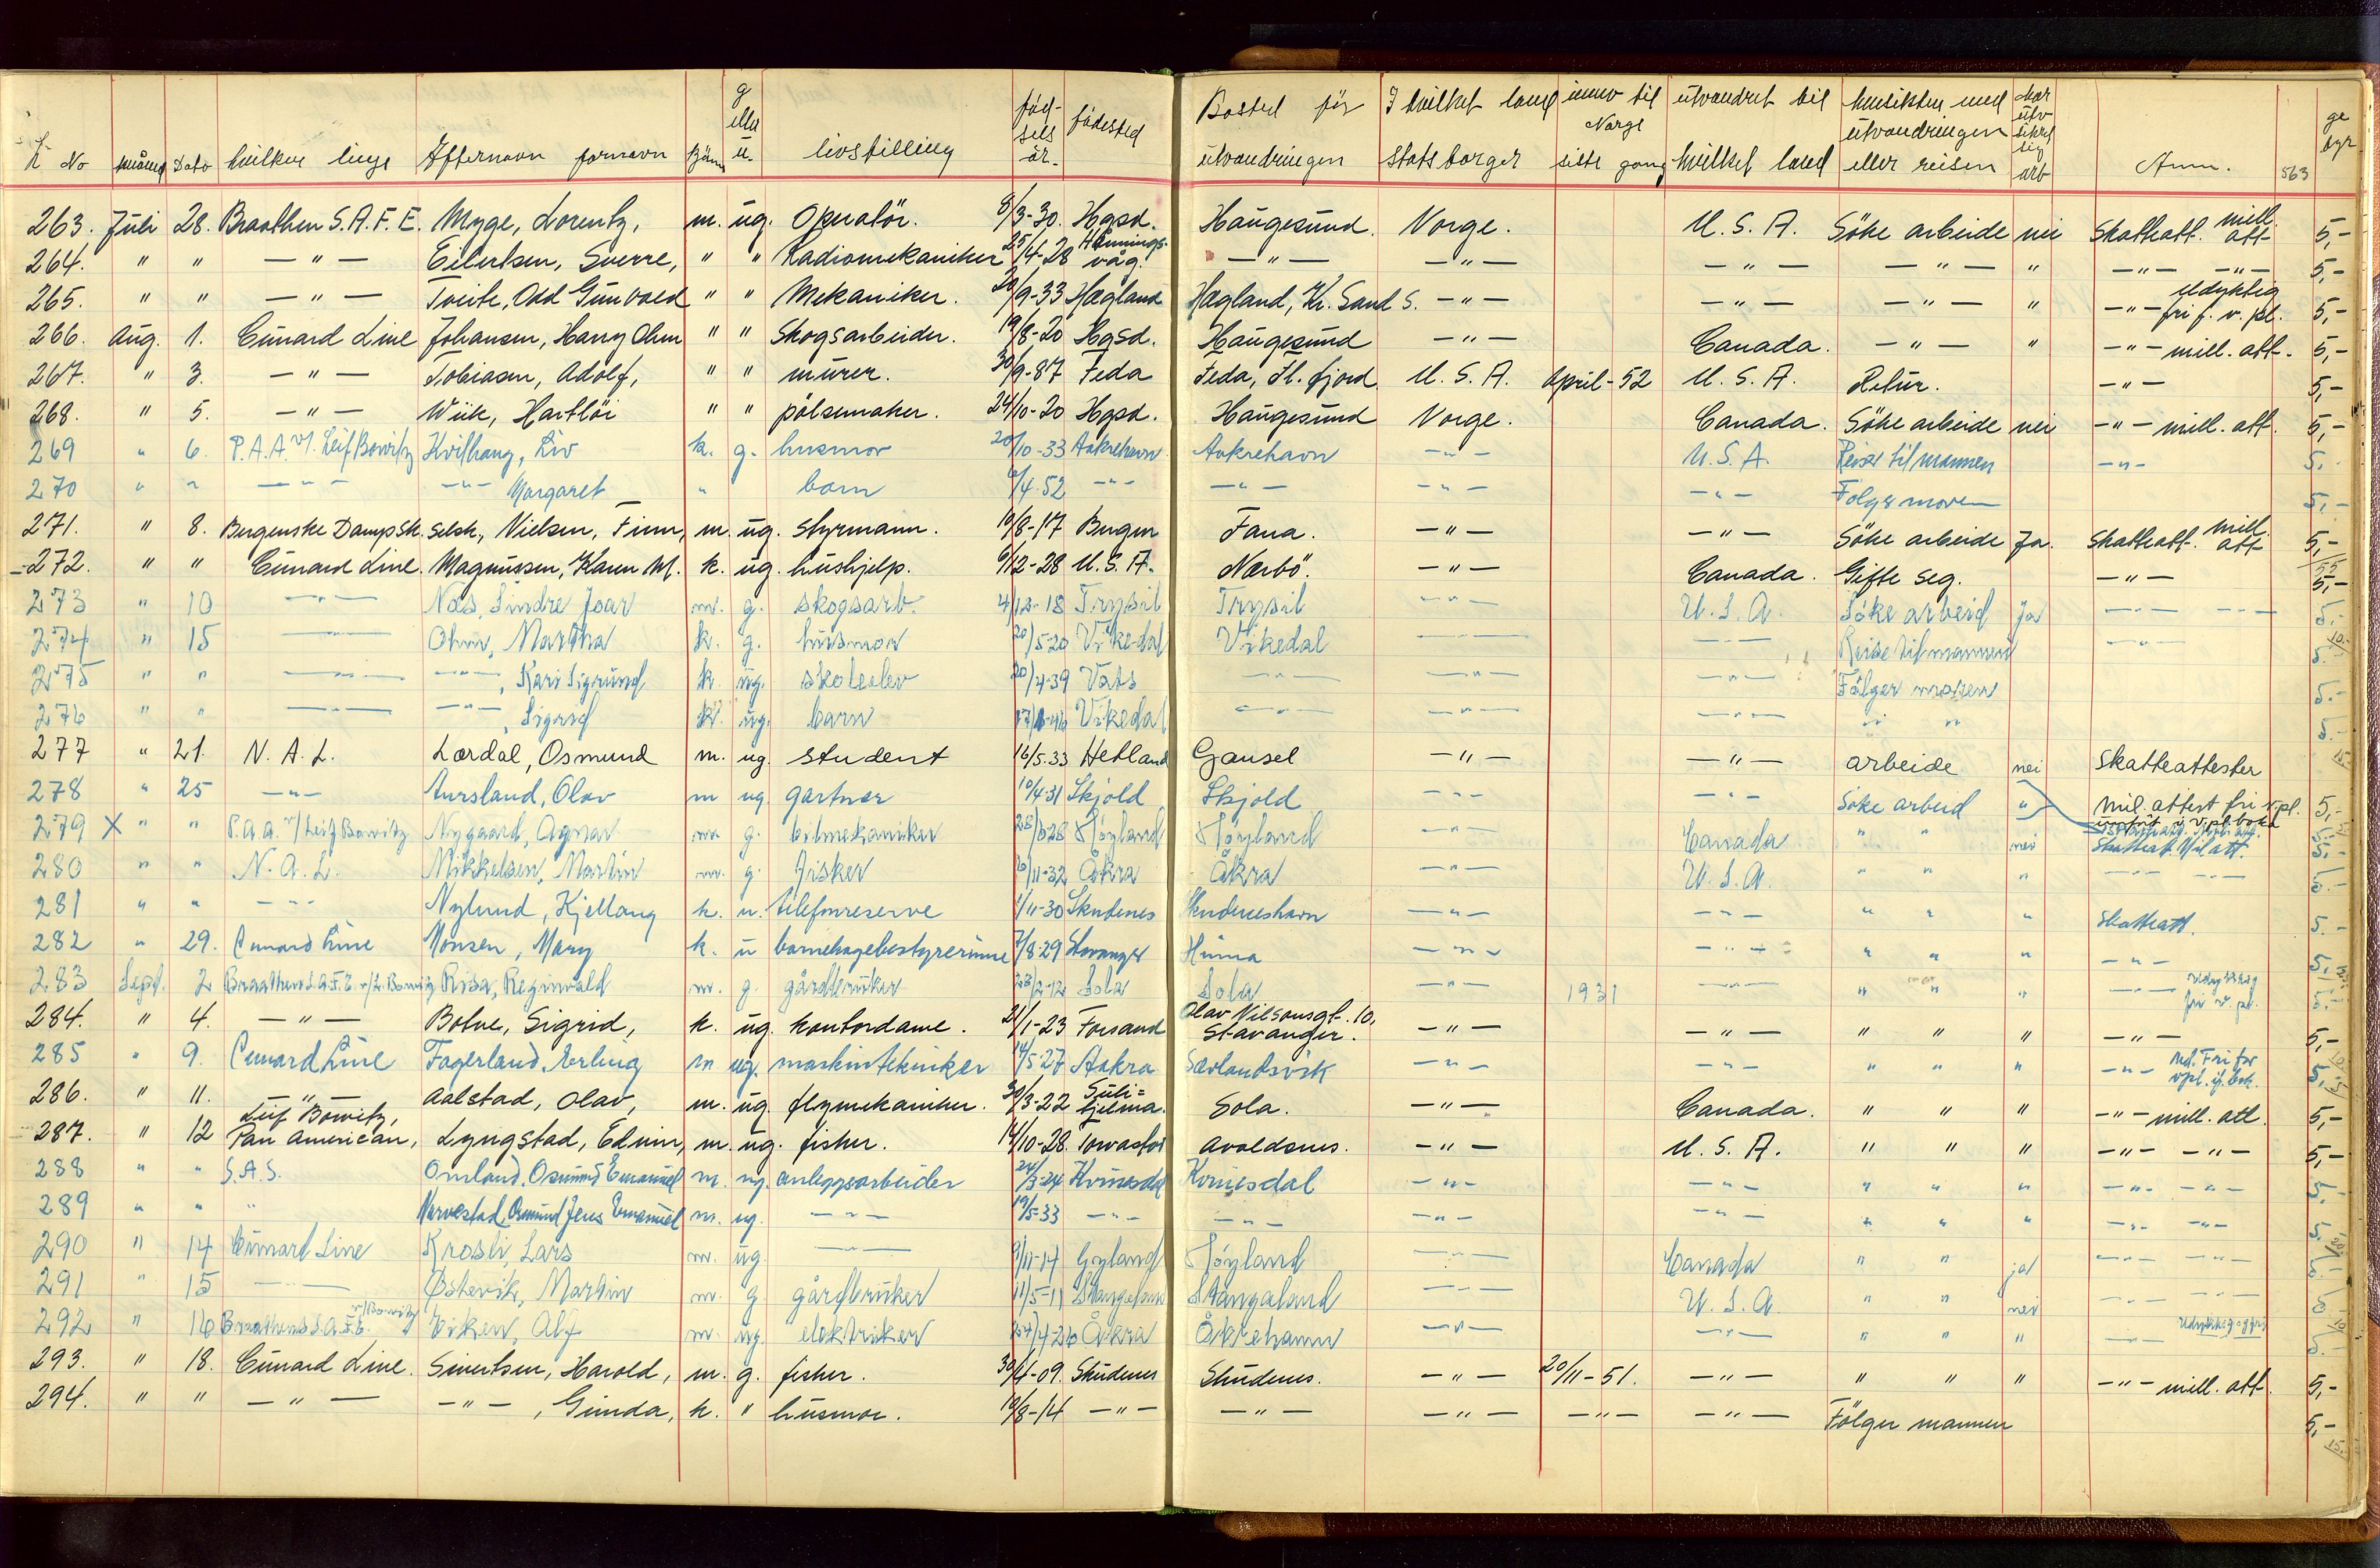 No måned Dato hvilken linje Efternavn fornavn kjønn g eller u. livstilling fødselsår fødested Bosted før utvandringen I hvilket land statsborger innv til Norge siste gang utvandret til hvilket land hensikten med utvandringen eller reisen har utv sikret sig arb Anm. 563 gebyr
263. Juli 28. Braathen S.A.F.E. Myge, Lorentz, m. ug. Operatör. 8/3-30. Hgsd. Haugesund. Norge. U.S.A. Söke arbeide nei Skatteatt. mill. att 5,-
264. " " — " — Eilertsen, Sverre, " " Radiomekaniker 25/4-28 Hønningsvåg. — " — — " — — " — — " — " — " — — " — 5,-
265. " " — " — Tveite, Odd Gunvald " " Mekaniker. 20/9-33 Hægland Hægland, Kr. Sand S. — " — — " — — " — " — " — Udyktig fri f. v. pl. 5,-
266. Aug. 1. Cunard Line Johansen, Harry Ohm " " Skogsarbeider. 19/8-20 Hgsd. Haugesund — " — Canada. — " — " — " — mill. att. 5,-
267. " 3. — " — Tobiasen, Adolf, " " murer. 30/9-87 Feda Feda, Fl. fjord U.S.A. April-52 U.S.A. Retur. — " — 5,-
268. " 5. — " — Wiik, Hartløi " " pölsemaker. 24/10-20 Hgsd. Haugesund Norge. Canada. Söke arbeide nei — " — mill. att. 5,-
269 " 6. P.A.A. v/ Leif Bowitz Kvilhaug, Liv k. g. husmor 20/10-33 Aakrehavn Aakrehavn — " — U.S.A. Reiser til mannen — " — 5,-
270 " " — " — — " — Margaret " barn /4-52 — " — — " — — " — — " — Følger moren 5,-
271. " 8. Bergenske Dampsk. Selsk, Nielsen, Finn, m. ug. styrmann. 10/8-17 Bergen Fana. — " — — " — Söke arbeide Ja. Skatteatt. mill. att 5,-
272. " " Cunard Line. Magnussen, Karen M. k. ug. hushjelp. 6/12-28 U.S.A. Nærbö. — " — Canada. Gifte seg. — " — 5,-
273 " 10 — " — Næs, Sindre Joar m. g. skogsarb. 4/12-18 Trysil Trysil — " — U.S.A. Söke arbeid Ja — " — — " — 5.-
274 " 15 — " — Ohm, Martha k. g. husmor 20/5-20 Vikedal Vikedal — " — — " — Reise til mannen — " — 5.-
275 " " — " — — " —, Kari Sigrund k. ug. skoleelev 20/4-39 Vats — " — — " — — " — Følger moren 5.-
276 " " — " — — " —, Sigrid k. ug. barn Vikedal — " — — " — — " — " " 5.-
277 " 21. N.A.L. Lærdal, Osmund m. ug. student 16/5-33 Hetland Gausel — " — — " — arbeide nei Skatteattester
278 " 25 — " — Aursland, Olav m ug gartner 10/4-31 Skjold Skjold — " — — " — Söke arbeid " Mil. attest fri v.pl. 5,-
279 X " " P.A.A. v/Leif Bowitz Nygaard, Agnar m. g. bilmekaniker Høyland Høyland — " — Canada " " nei Skatteatt. Mil att. 5.-
280 " " N.A.L. Mikkelsen, Martin m. g. fisker /11-32 Åkra Åkra — " — U.S.A. " " " — " — — " — 5.-
281 " " — " — Nylund, Kjellaug k. u. telefonreserve 1/11-30 Skudenes Skudeneshavn — " — — " — " " " Skatteatt. 5.-
282 " 29. Cunard Line Monsen, Mary k. u barnehagebestyrerinne 7/8-29 Stavanger Hinna — " — — " — " " " — " — 5,-
283 Sept. 2 Braathens S.A.F.E. v/L. Bowitz Risa, Reginvald m. g. gårdbruker 28/2-12 Sola Sola — " — 1931 — " — " " " — " — Udyktig fri v. pl. 5.-
284. " 4. — " — Botne, Sigrid, k. ug. kontordame. 21/1-23 Forsand Olav Nilsonsgt. 10, Stavanger. — " — — " — " " " — " — 5,-
285 " 9. Cunard Line Fagerland, Erling m ug. maskintekniker 14/5-27 Aakra Sævlandsvik — " — — " — " " " — " — Fri for vpl. 5,-
286. " 11. — " — Aalstad, Olav, m. ug. flymekaniker. 30/3-22 Sulitjelma. Sola. — " — Canada. " " " — " — mill. att. 5,-
287. " 12 Leif Bowitz, Pan American, Lyngstad, Edvin, m. ug. fisker. 14/10-28. Torvastad Avaldsnes. — " — U.S.A. " " " — " — — " — 5,-
288 " " S.A.S. Omland, Osmund Emanuel m. ug. anleggsarbeider 24/3-24 Kvinesdal Kvinesdal — " — — " — " " " — " — — " — 5.-
289 " " " Narvestad, Osmund Jens Emanuel m. ug. — " — 19/5-33 — " — — " — — " — — " — " " " — " — — " — 5.
290 " 14 Cunard Line Krosli, Lars m. ug. — " — 9/11-14 Gyland Høyland — " — Canada " " ja — " — — " — 5.-
291 " 15 — " — Østevik, Martin m. g gårdbruker 11/5-11 Stangeland Stangeland — " — U.S.A. " " nei — " — — " — 5.-
292 " 16 Braathens S.A.F.E. v/Bowitz Eiken, Alf m. ug. elektriker 27/4-26 Åkra Åkrehamn — " — — " — " " " — " — 5.-
293. " 18. Cunard Line. Sivertsen, Harold, m. g. fisker. 30/4-09. Skudenes Skudenes. — " — 20/11-51. — " — " " " — " — mill. att. 5,-
294. " " — " — — " —, Gunda, k. " husmor. 10/8-14 — " — — " — — " — — " — — " — Følger mannen 5,-